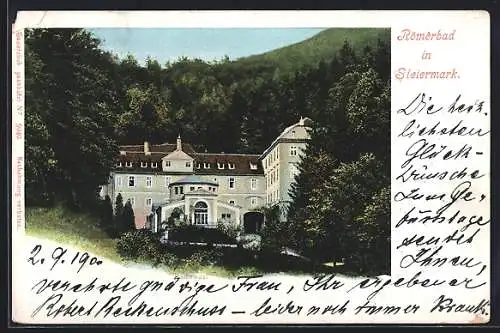 Römerbad
in
Steiermark.
Die herz-
lichsten
Glück-
wünsche
zum Ge-
burtstage
sendet
Ihnen,
2. 9. 1900
verehrte gnädige Frau, Ihr ergebener
Robert Reckenschuss – leider noch immer krank.